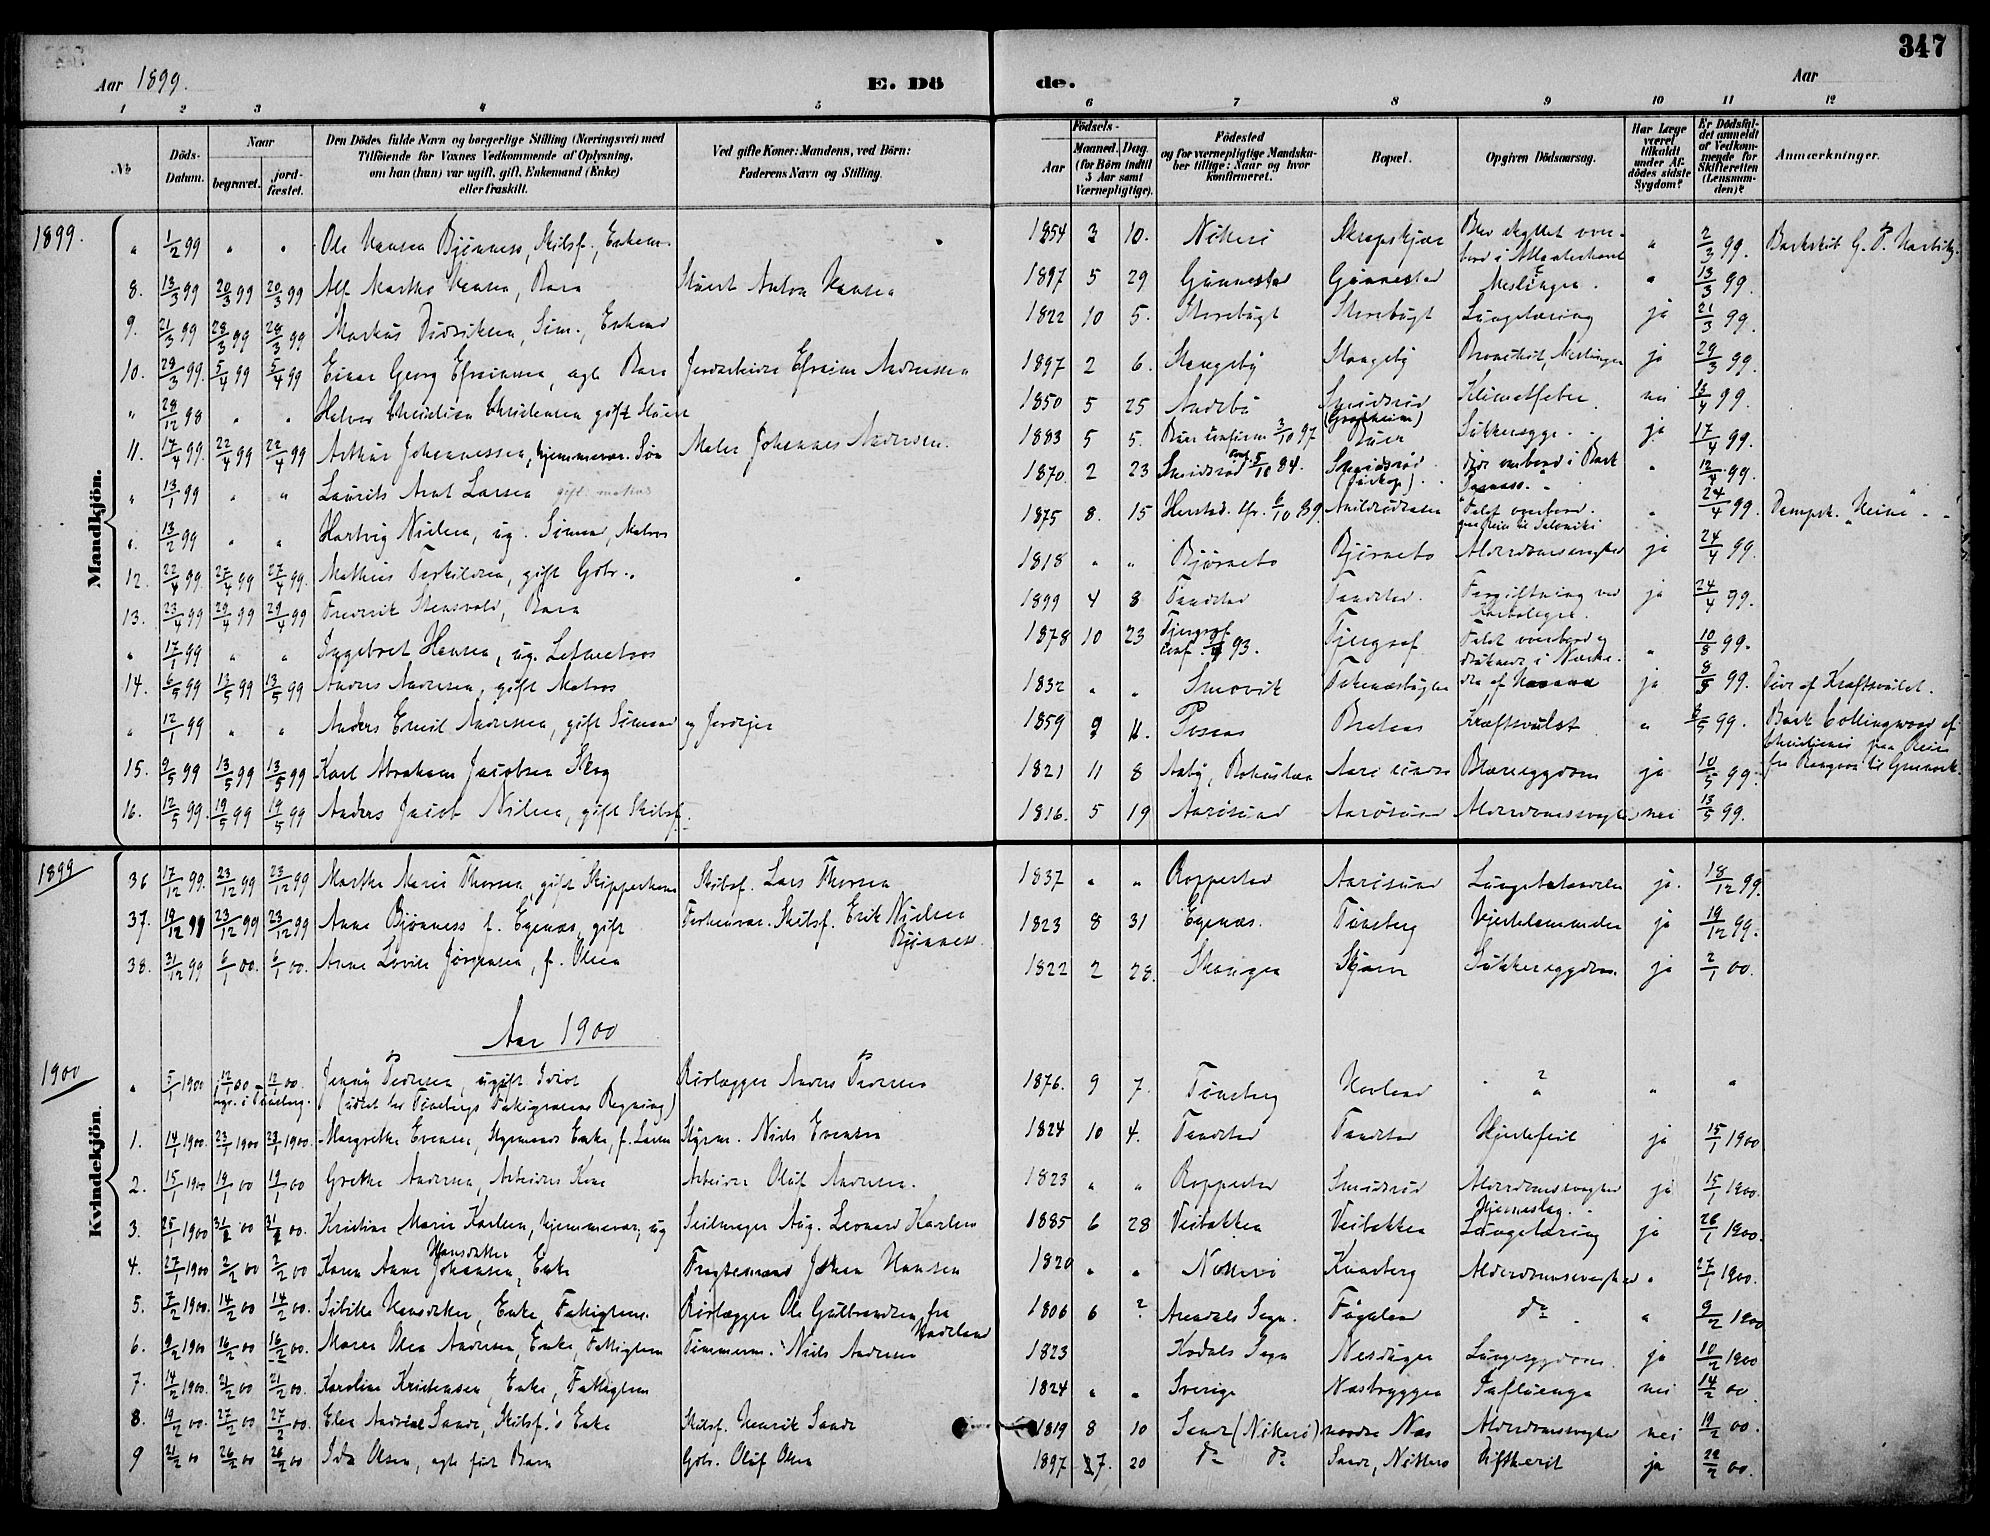 347
Aar 1899. E. Dö de. Aar
1 2 3 4 5 6 7 8 9 10 11 12
No Döds-Datum. Naar begravet. jordfæstet. Den Dödes fulde Navn og borgerlige Stilling (Næringsvei) med Tilföiende for Voxnes Vedkommende af Oplysning, om han (hun) var ugift, gift, Enkemand (Enke) eller fraskilt. Ved gifte Koner: Mandens, ved Börn: Faderens Navn og Stilling. Födsels- Aar Maaned. Dag. (for Börn indtil 5 Aar samt Værnepligtige). Födested og for værnepligtige Mandskaber tillige: Naar og hvor konfirmeret. Bopæl. Opgiven Dödsaarsag. Har Læge været tilkaldt under Afdödes sidste Sygdom? Er Dödsfaldet anmeldt af Vedkommende for Skifteretten (Lensmanden)? Anmærkninger.
Mandkjön.
1899. " 1/2 99 " " Ole Hansen Bjönness, Skibsf., Enkem. 1854 3 10. Nöterö Skrapskjær Blev skyllet overbord i Atlanterhavet " 2/3 99. Barkskib G. P. Harbitz
8. 13/3 99 20/3 99 20/3 99 Alf Martho Hansen, Barn Stuert Anton Hansen 1897 5 29 Gunnestad Gunnestad Meslinger. " 13/3 99.
9. 21/3 99 28/3 99 28/3 99 Markus Didriksen, Söm., Enkemd 1822 10 5. Storebugt Storebugt Lungetæring ja 21/3 99.
10. 29/3 99. 5/4 99 5/4 99 Einar Georg Efraimsen, agte Barn Jordarbeider Efraim Andreassen 1897 2 6. Stangeby Stangeby Bronchit, Meslinger ja 29/3 99.
" 28/12 98 " " Halvor Christian Christensen gift Stuert 1850 5 25 Andebu Smidsröd Klimatfeber. nei 13/4 99.
11. 17/4 99. 22/4 99 22/4 99 Arthur Johannessen, hjemmevær. Sön Maler Johannes Andersen. 1883 5 5. 3/10 97 Sukkersyge. ja 17/4 99.
" 13/1 99 " " Laurits Arnt Larsen gift matros 1870. 2 23 Smidsröd 5/10 84. Smidsröd overbord i Bark " 12/4 99.
" 13/2 99 " " Hartvig Nielsen, ug. Sömand, Matros 1875 8. 15 6/10 89. Faldt overbord. " 24/4 99. Dampsk. "Heini"
12. 22/4 99. 27/4 99 27/4 99. Mathias Torkildsen, gift Gbr. 1818 " " Björnebo Björnebo Alderdomssvaghed ja 24/4 99.
13. 23/4 99 29/4 99 29/4 99 Fredrik Stensvold, Barn 1899 4 8 Tandstad Tandstad. Forgiftning ved ja 24/4 99.
" 17/1 99 " " Ingebret Hansen, ug. Letmatros 1878 10 23 93. Faldt overbord og druknede i " 10/8 99.
14. 6/5 99 13/5 99 13/5 99 Anders Andersen, gift Matros 1832 " " Smövik ja 8/5 99. Döde af Kræftsvulst.
" 12/1 99 " " Anders Emil Andersen, gift Sömand og Jordejer 1859 9 11. Kræftsvulst " 8/5 99. Bark Collingwood af Christiania paa Reise fra Rangoon til Greenock.
15. 9/5 99 13/5 99 13/5 99 Karl Abraham Jacobsen Skog 1821 11 8 Aaby, Bohuslen Aarösund Blæresygdom ja 10/5 99.
16. 12/5 99. 19/5 99 19/5 99 Anders Jacob Nilsen, gift Skibsf. 1816. 5 19 Aarösund Aarösund Alderdomssvaghed nei 13/5 99.
Kvindekjön.
1899 36 17/12 99. 23/12 99 23/12 99 Marthe Marie Thorsen, gift Skipperkone Skibsf. Lars Thorsen 1837 " " Roppestad Aarösund Lungebetændelse ja. 18/12 99.
37. 19/12 99 23/12 99 23/12 99 Anne Bjönness f. Egenæs, gift Forhenvær. Skibsf. Erik Nielsen Bjönness. 1823 8 31 Egenæs. Tönsberg Hjertelammelse ja 19/12 99.
38. 31/12 99 6/1 00. 6/1 00. Anne Lovise Jörgensen, f. Olsen 1822 2 28. Skaugen Skjærer Sukkersygdom. ja 2/1 00.
Aar 1900
1900 " 5/1 1900 12/1 00 12/1 00. Jenny Pedersen, ugift Idiot Rörlægger Anders Pedersen 1876. 9 7. Tönsberg ? " "
begr. i Tönsberg. (udsat for Tönsbergs Fattigvæsens Regning)
1. 14/1 1900. 23/1 1900 23/1 1900. Margrethe Evensen, Styrmands Enke, f. Larsen Styrm. Niels Evensen 1824 10 4. Tandstad Tandstad Hjertefeil ja 15/1 1900
2. 15/1 1900 19/1 00 19/1 00 Grethe Andersen, Arbeiders Kone Arbeider Oluf Andersen. 1823 " " Roppestad Smidsröd Alderdomssvaghed Hjerneslag. ja 15/1 1900.
3. 25/1 1900 31/1 00 31/1 00. Kristine Marie Karlsen, hjemmevær, ug Seilmager Aug. Leonard Karlsen 1885 6 28 Veibakken Veibakken Lungetæring ja 26/1 1900.
4. 27/1 1900 2/2 00 2/2 00 Karen Anne Hansdatter Johansen, Enke Fragtemand Johan Hansen 1820 " " Nöterö Knarberg Alderdomssvaghed " 27/1 1900.
5. 7/2 1900. 14/2 00 14/2 00 Sibille Hansdatter, Enke, Fattiglem. Rörlægger Ole Gulbrandsen fra Hadeland 1806 6 ? Arendals Sogn. do " 9/2 1900
6. 9/2 1900 16/2 00 16/2 00. Maren Olea Andersen, Enke, Fattiglem Tömmerm. Niels Andersen 1823 Kodals Sogn Lungesygdom. ja 10/2 1900
7. 14/2 1900. 21/2 00 21/2 00. Karoline Kristensen, Enke, Fattiglem 1824 " " Sverige Næsbryggen Influenza nei 14/2 00.
8. 19/2 00. 27/2 00 27/2 00. Elen Andrine Sande, Skibsf.'s Enke Skibsf. Henrik Sande 1819 8 10 Sande (Nöterö) nordre Næs Alderdomssvaghed nei 19/2 00.
9 21/2 00 26/2 00 26/2 00 Ida Olsen, agte födt Barn Gbr. Oluf Olsen 1897 7. 20 do do Sande, Nötterö Difterit ja 22/2 00.